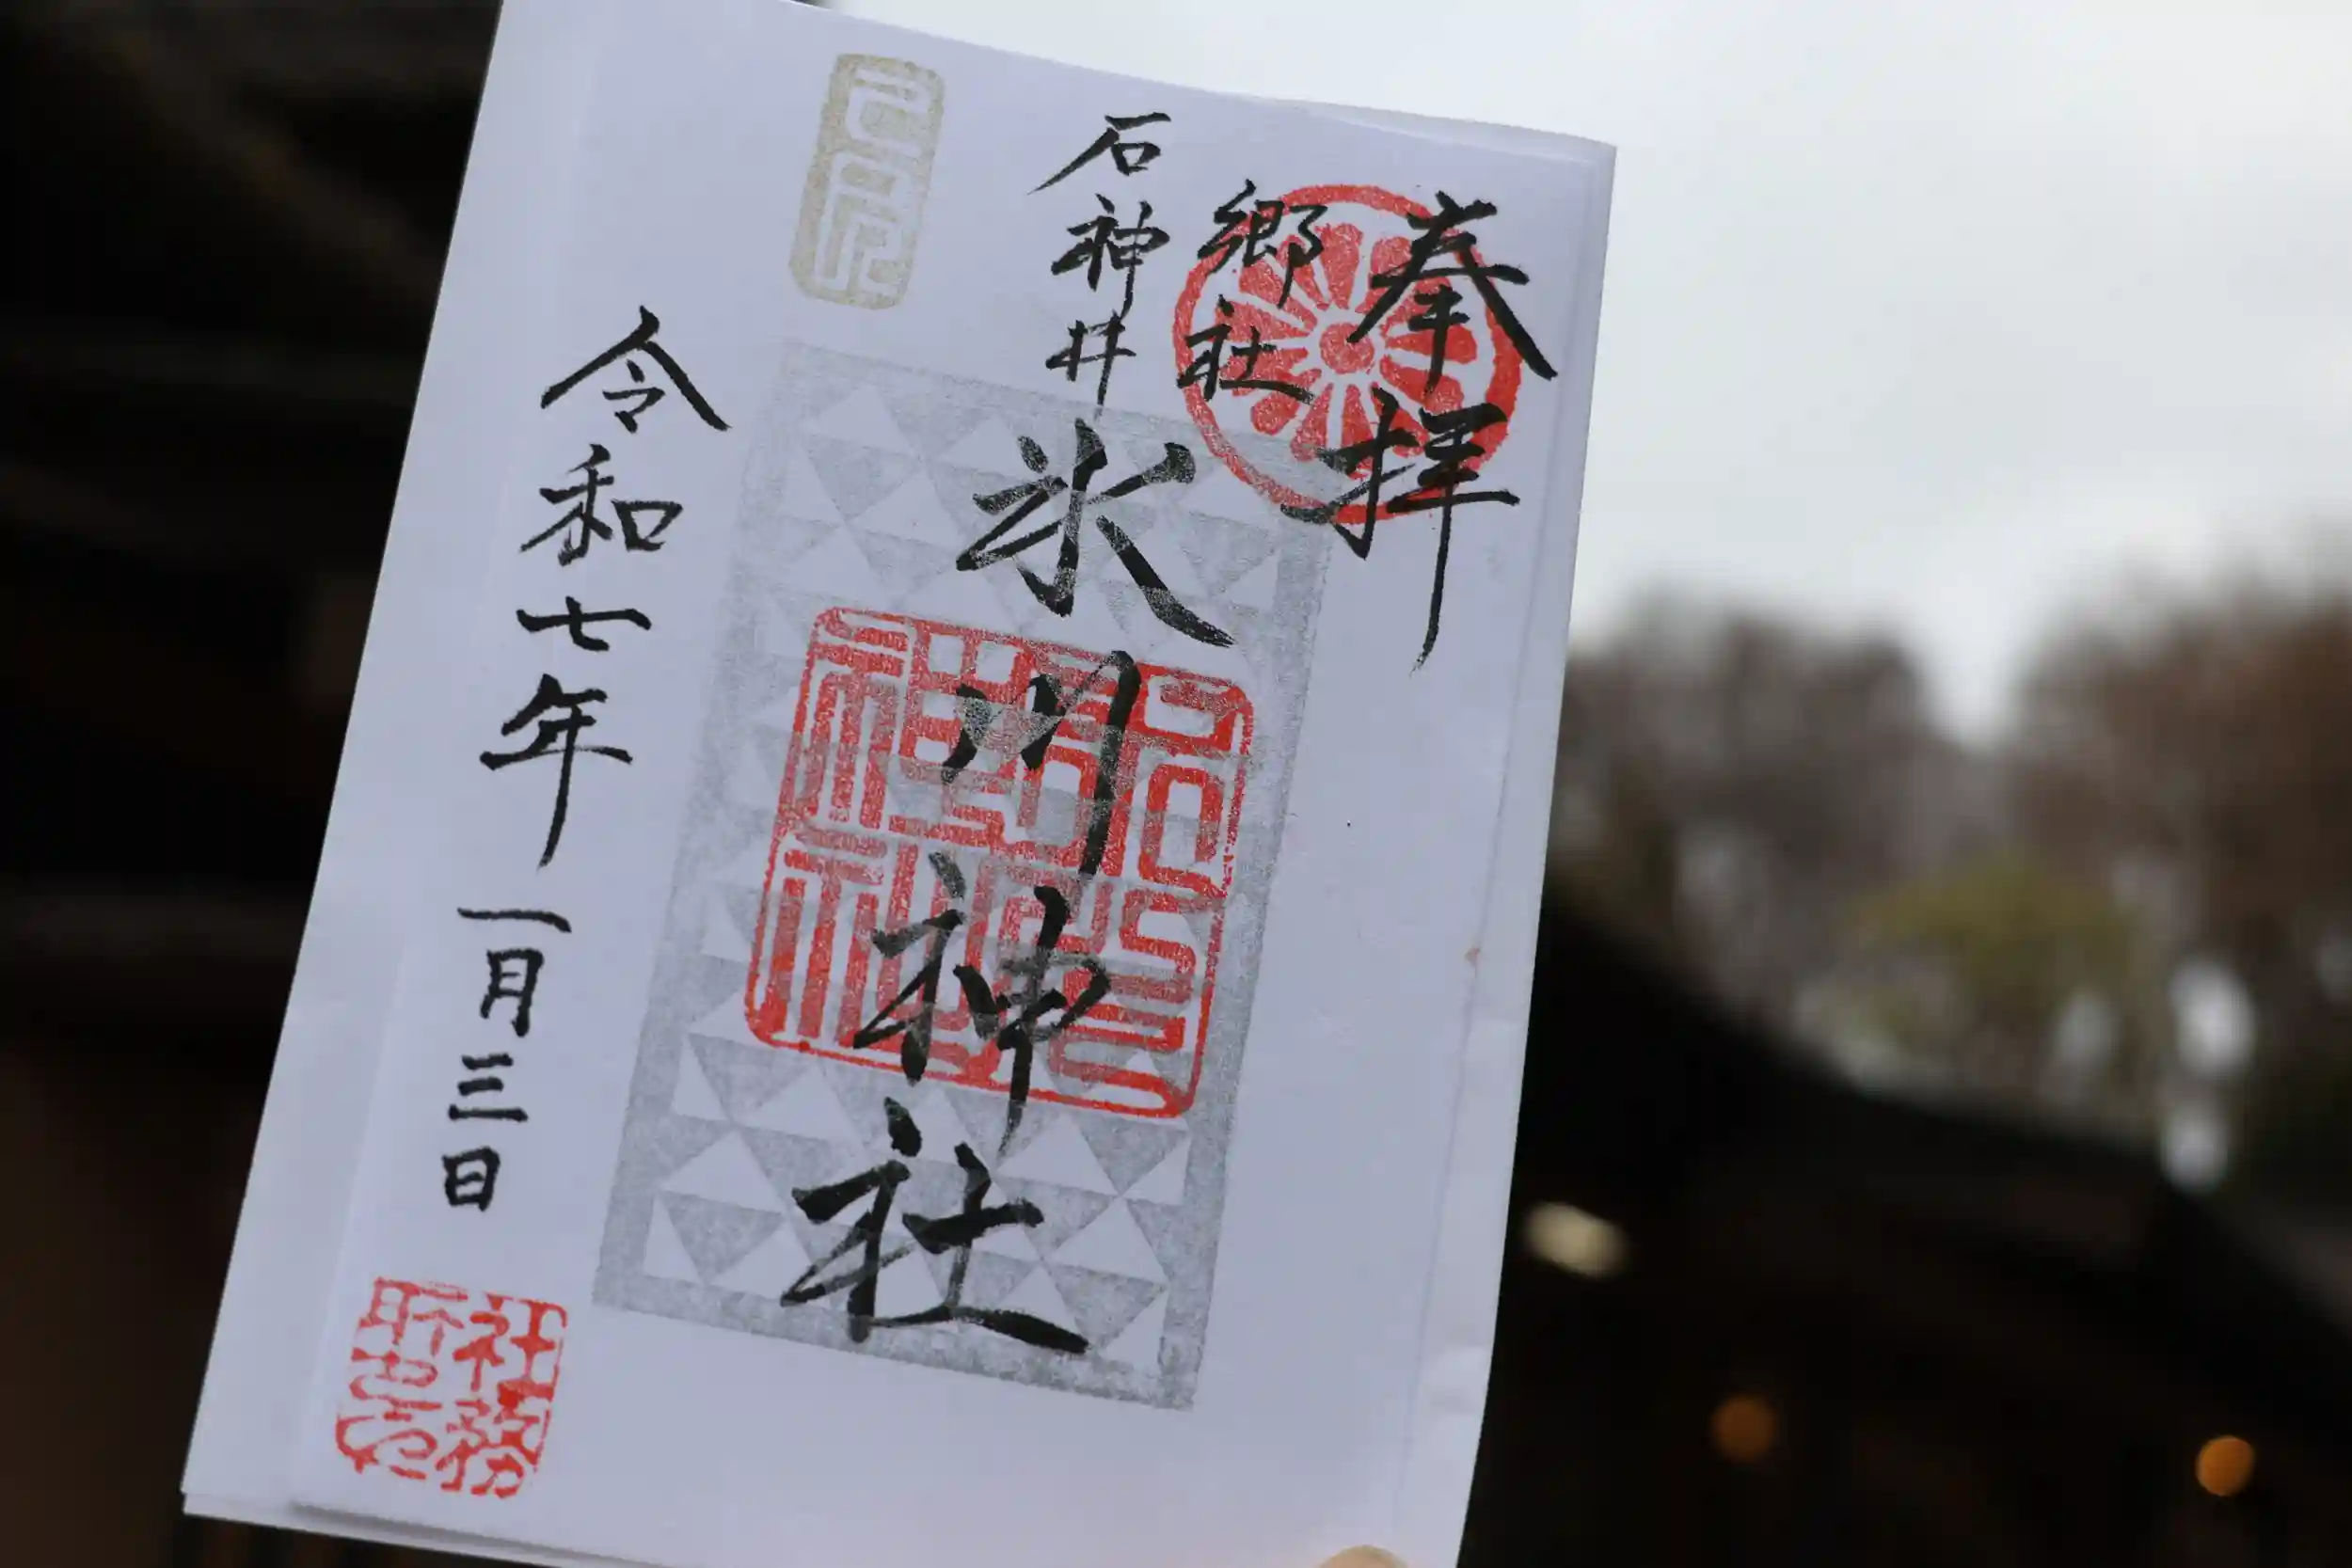 奉拝
郷社
石神井
氷川神社
己巳
令和七年一月三日
社務所之印